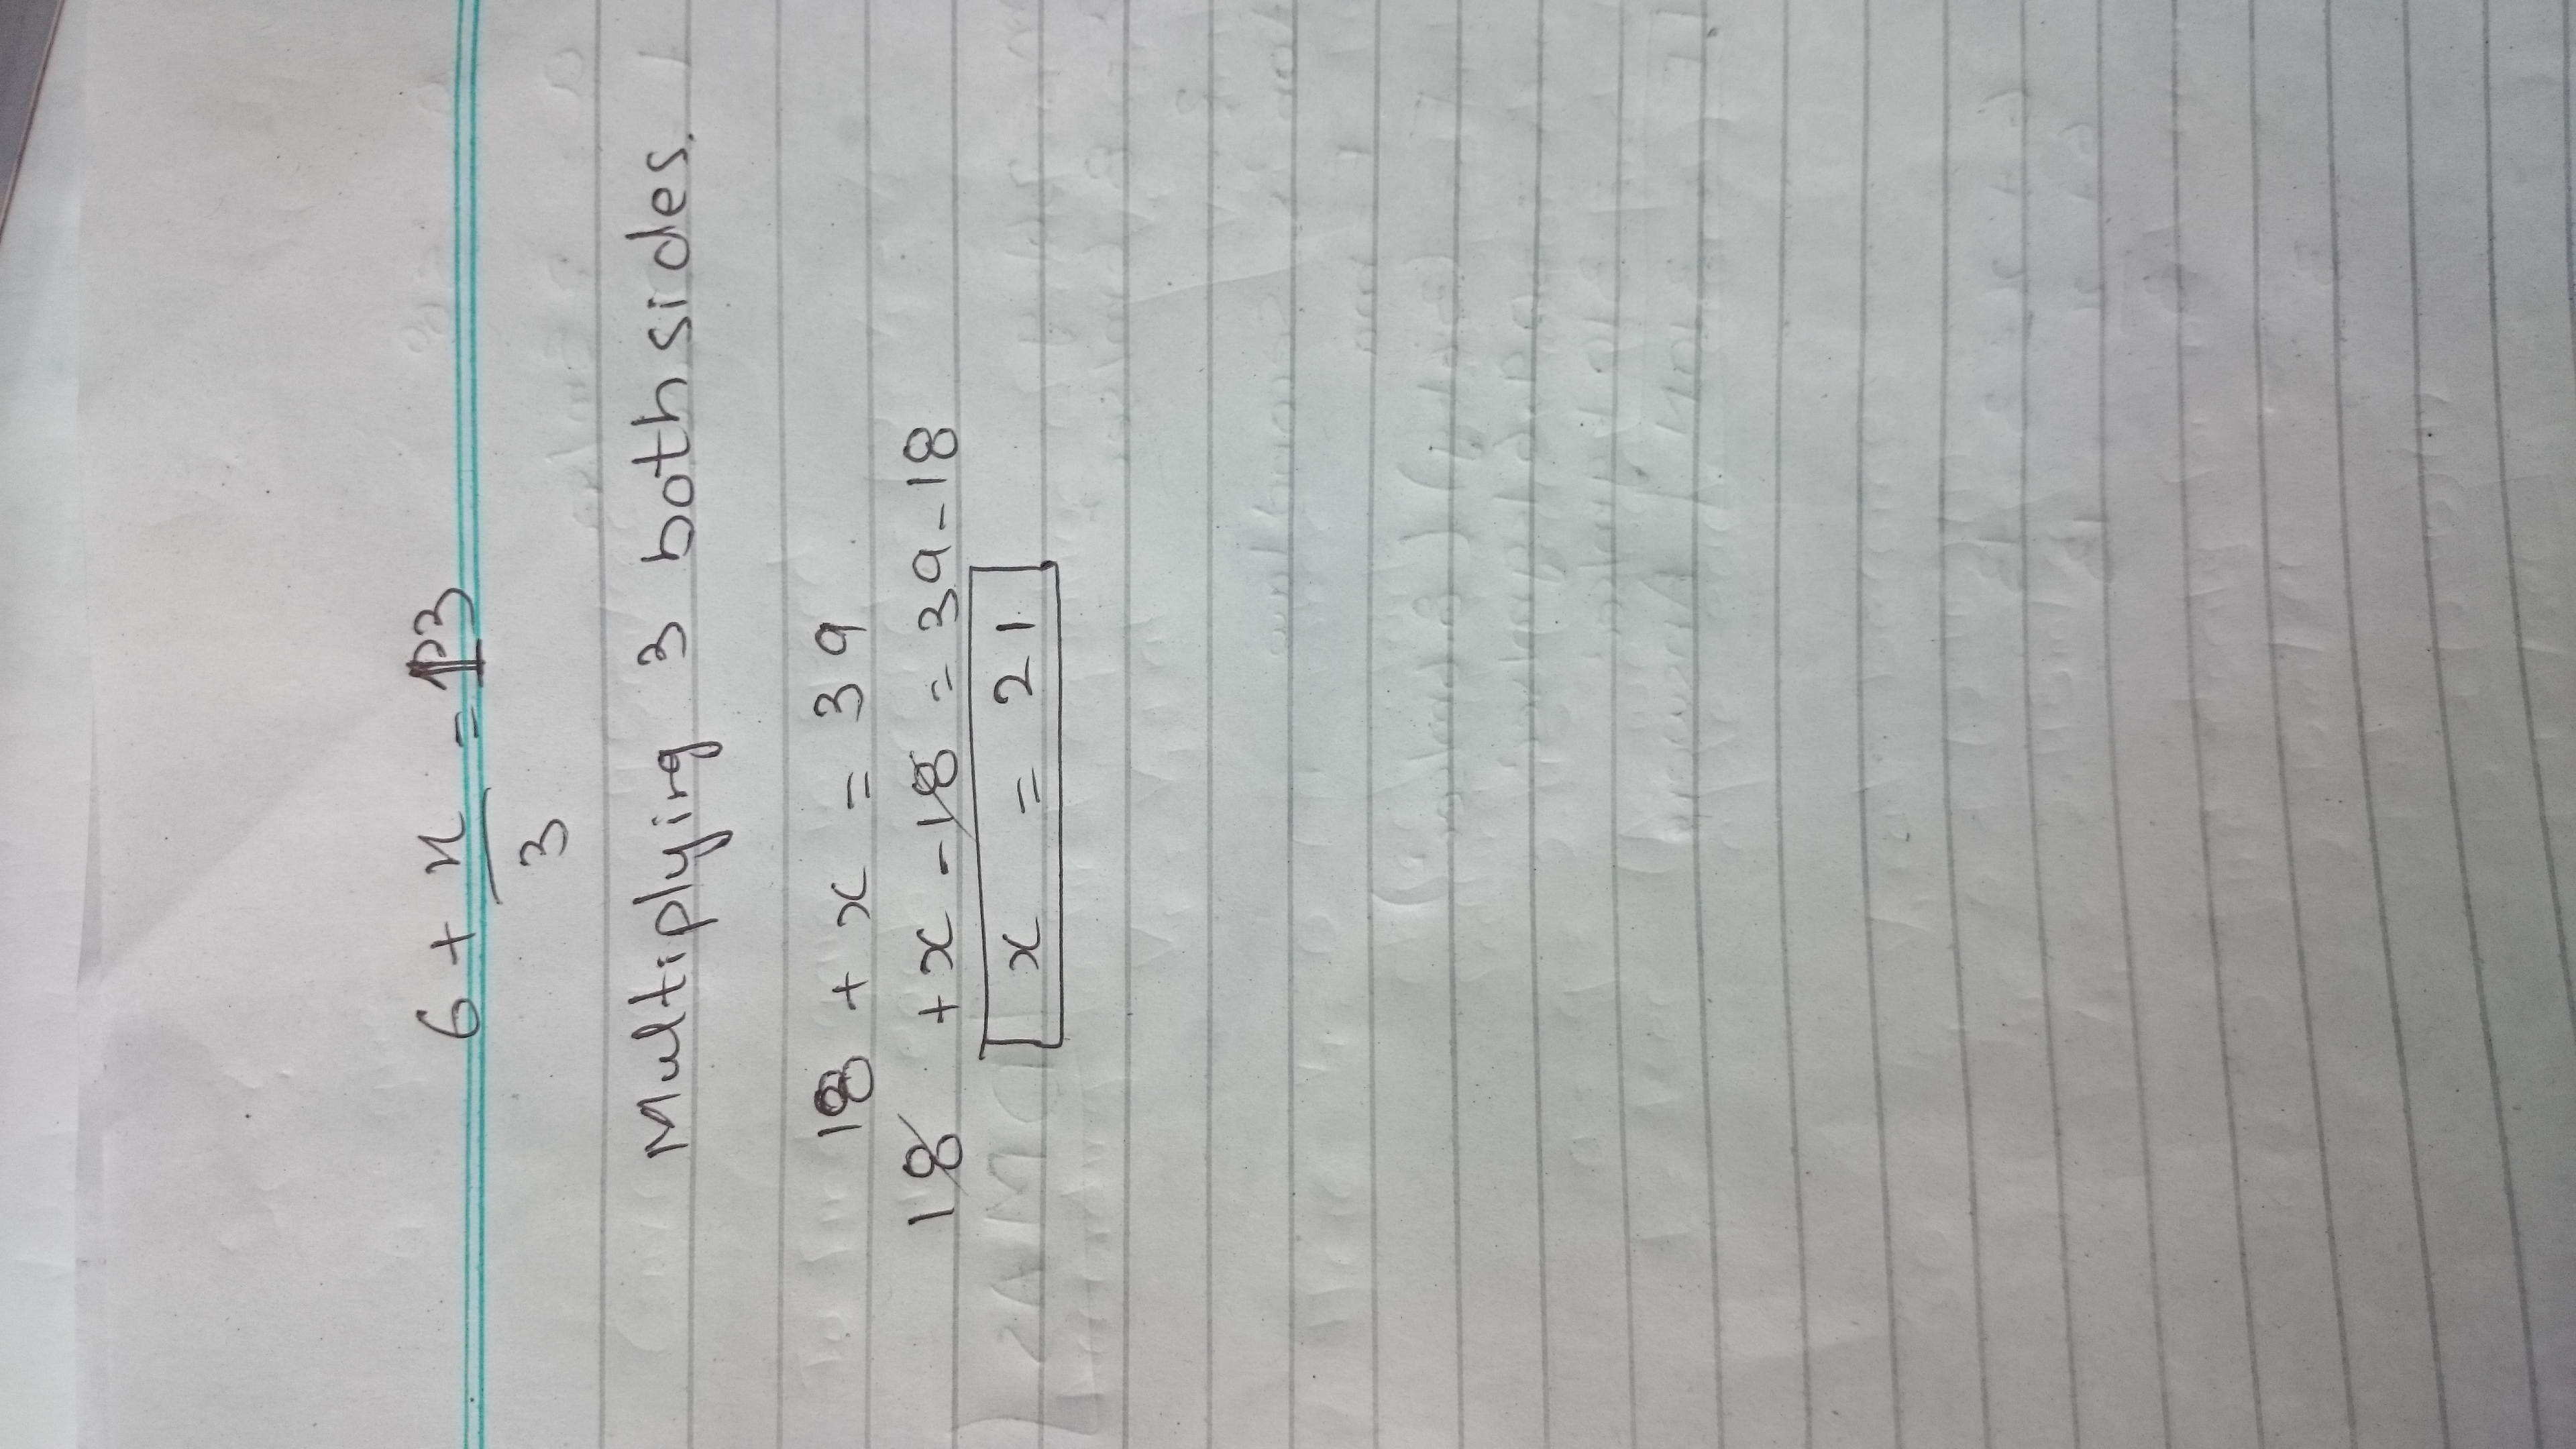 6 + x/3 = 13
Multiplying 3 both sides.
18 + x = 39
18 + x - 18 = 39 - 18
x = 21